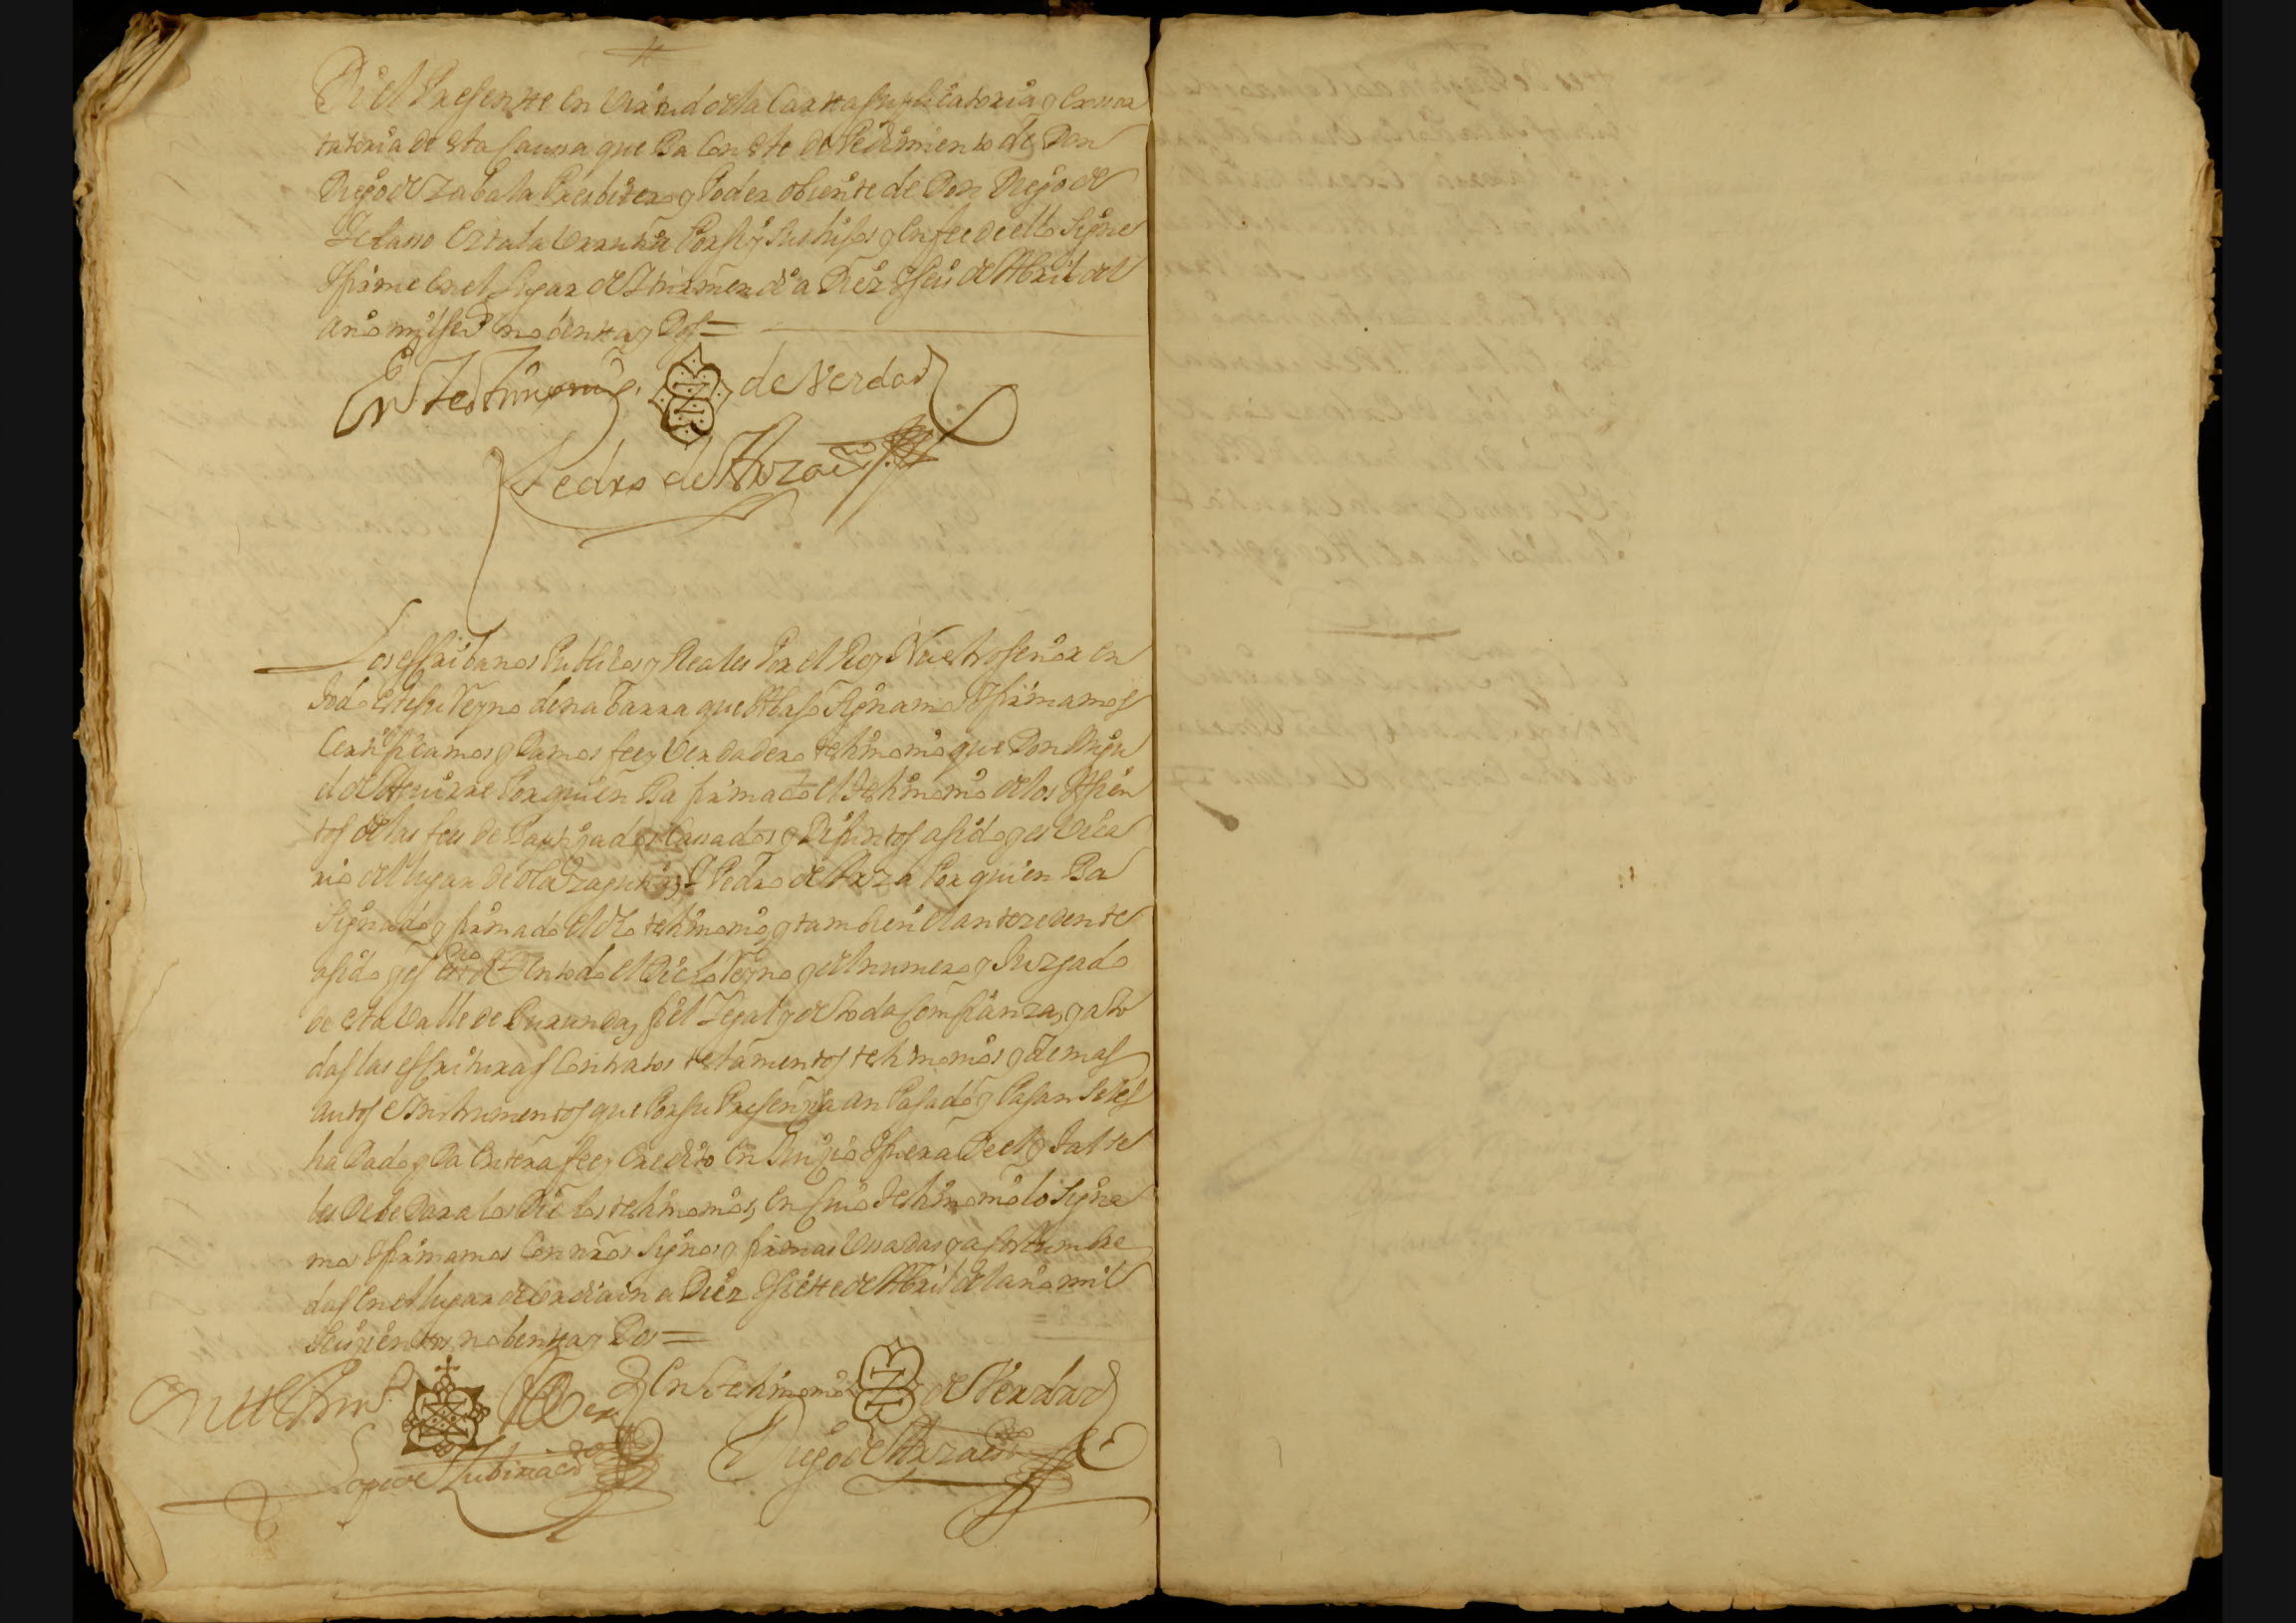 Di el Presente en Virtud de la Carta suplicatoria y Exsor
tatoria de esta Caussa que Ba Con este de Pedimiento de Don
Diego de Zabala Presbitero y Poder obiente de Don Diego de
Zelano Errala por si y sus hijos y en fee de ello Signe
y firme en el Lugar de Iturmendi a Diez y seis de Abril del
año mil seis.os nobenta y Dos =
En testimonio de Verdad
Pedro de Arza ess.no
Los essribanos Publicos y Reales Por el Rey Nuestro señor en
todo este su Reyno de nabarra que Abaso Signamos y firmamos
Certificamos y Damos fee y Verdadero testimonio que Don Migu
el de Aguirre Por quien Ba firmado el testimonio de los Assien
tos de las fees de Bautizados Cassados y Difuntos a sido y es Vica
rio del lugar de olazagutia, y Pedro de Arza Por quien Ba
Signado y firmado el dho testimonio y tambien el antezedente
a sido y es ess.no R.l en todo el Dicho Reyno y del numero y Juzgado
de esta Valle de Burunda, fiel Legal y de toda Comfianza, y a to
das las essrituras Contratos testamentos testimonios y demas
autos e Instrumentos que Por su Presenzia an Pasado y Pasan se les
ha Dado y Da Entera fee y Credito en Juizio y fuera de el y tal se
les Debe Dar a los Dichos testimonios, en cuio testimonio lo Signa
mos y firmamos Con nros Signos y firmas Usadas y acostumbra
das en el lugar de Urdiain a Diez y siette de Abril del año mil
Seiszientos nobenta y Dos =
En testim.o de Ver.d En testimonio de Verdad
Lope de Zubiria ess.no Diego de Arza ess.no